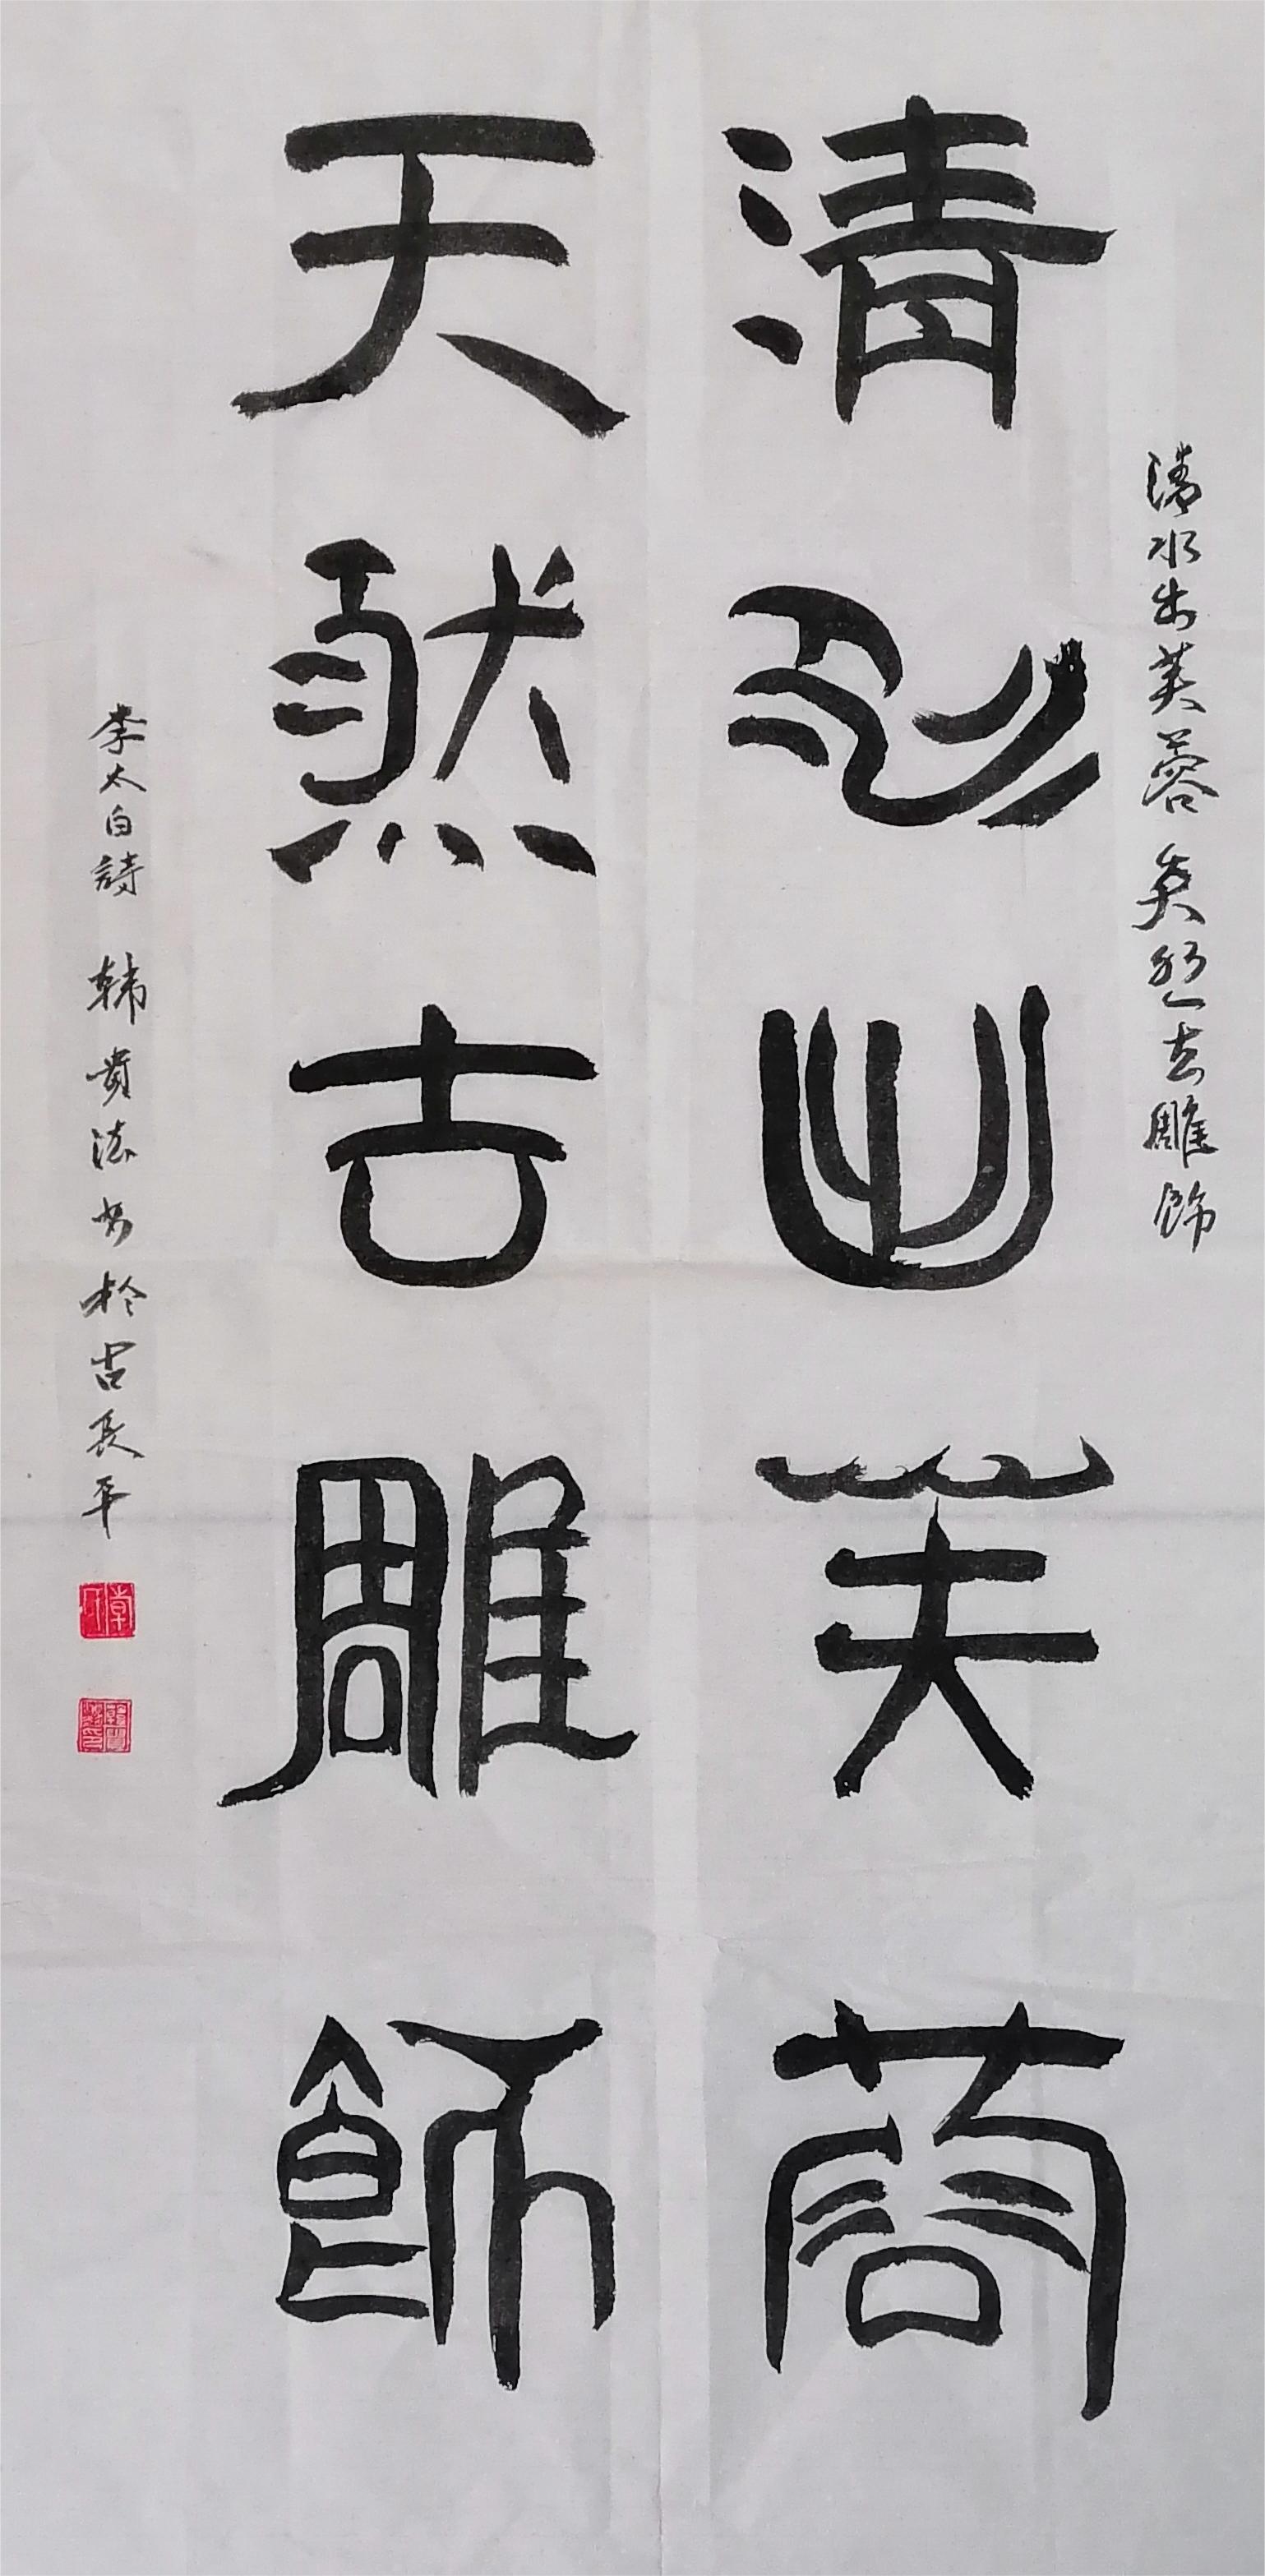 清水出芙蓉 天然去雕飾
清水出芙蓉
天然去雕飾
李太白詩 韓貴法书於古長平